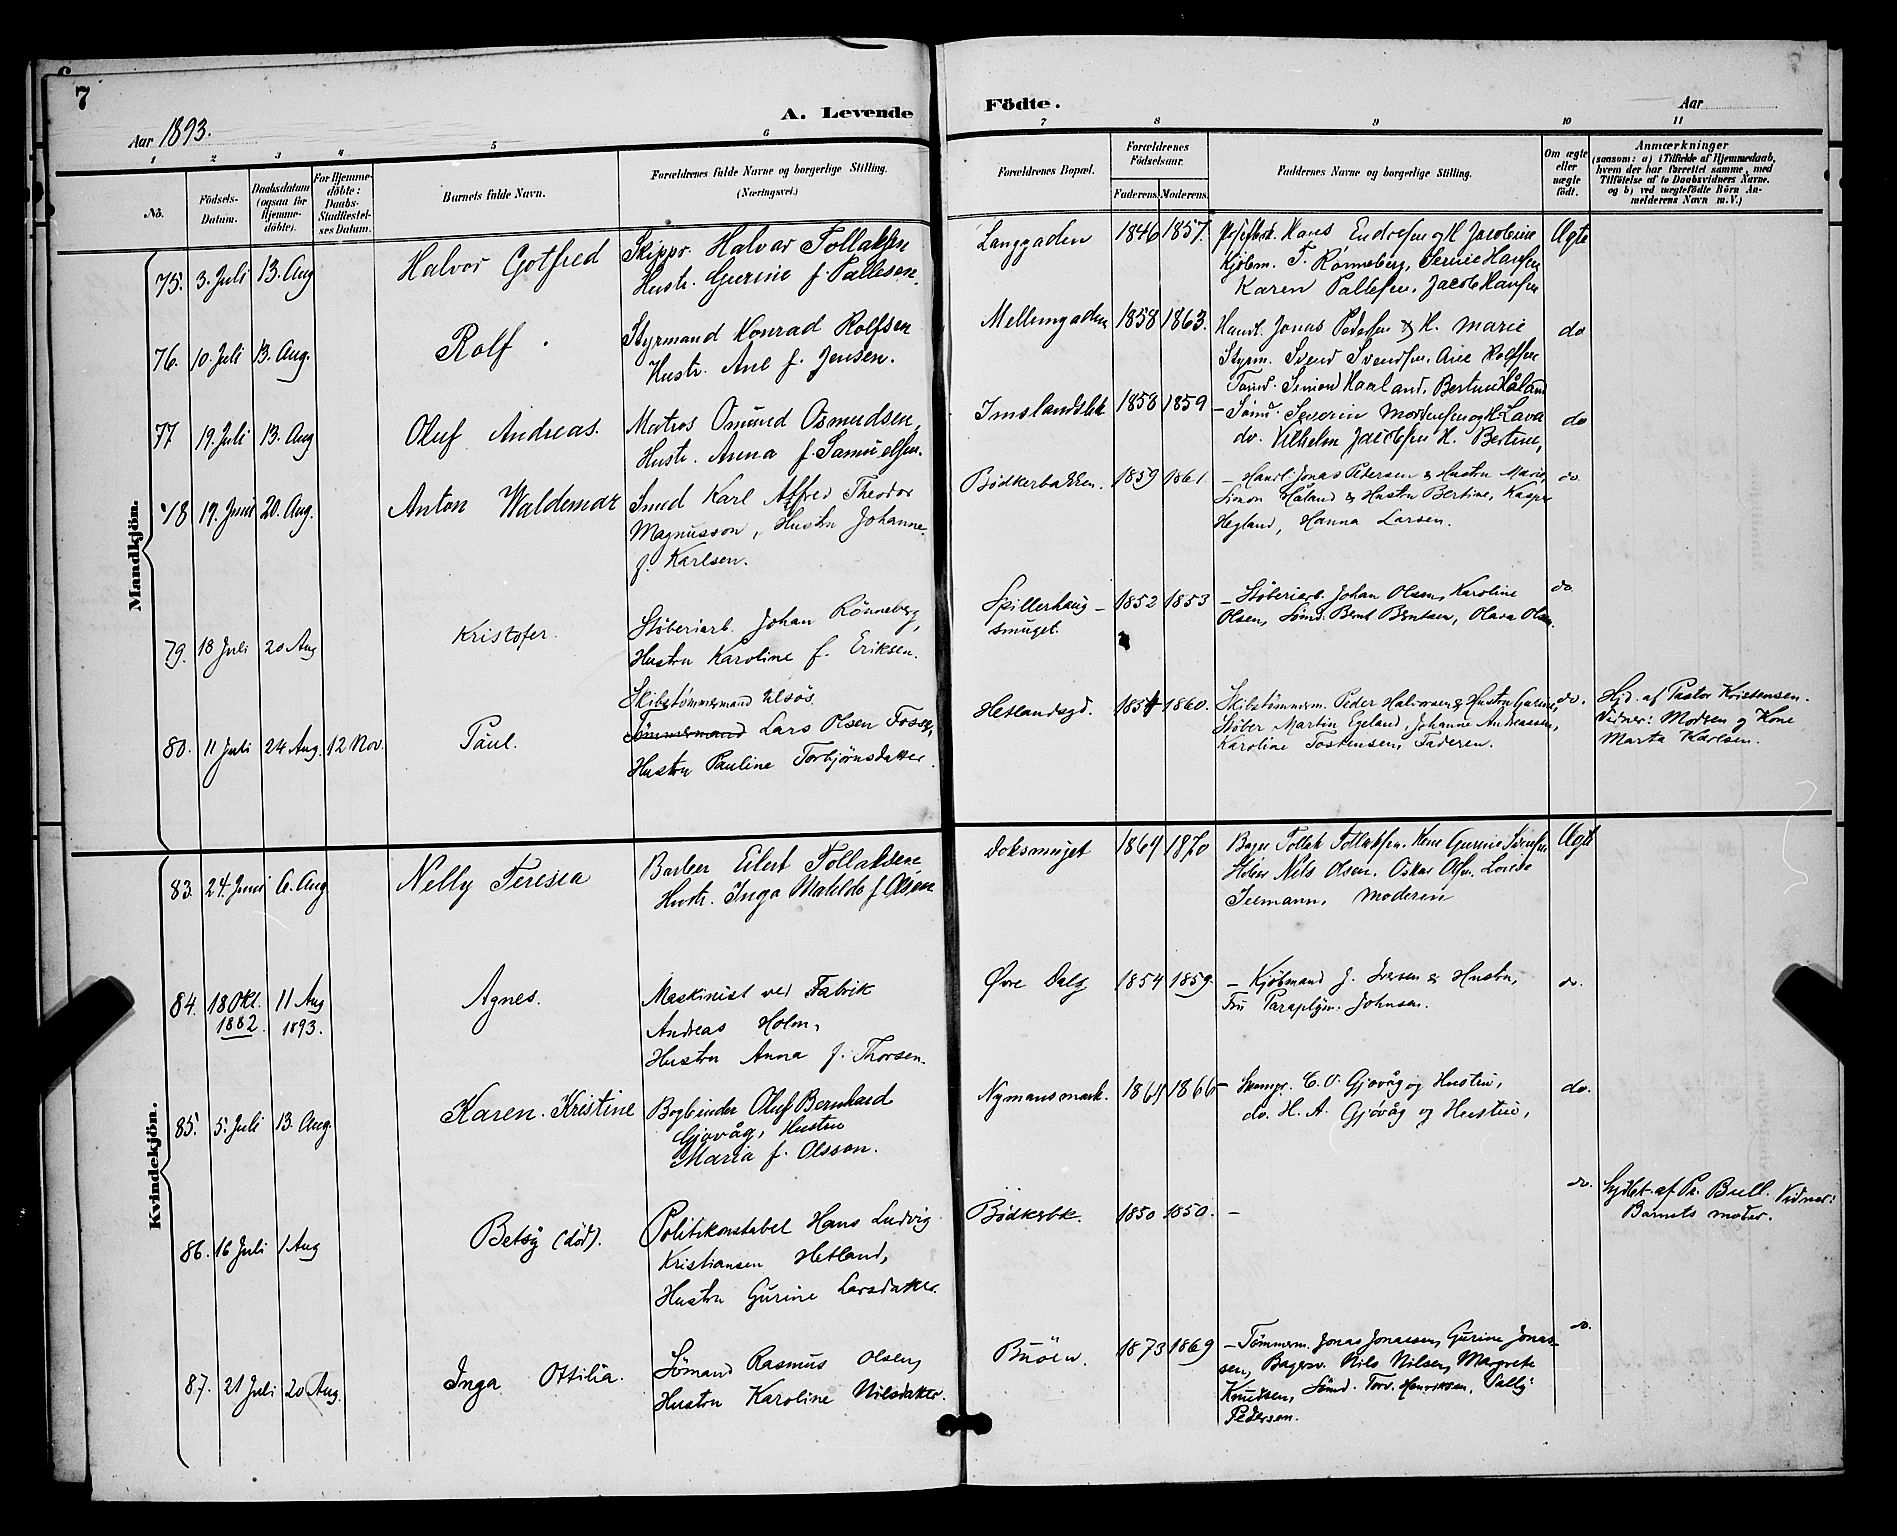 7
A. Levende Födte.
Aar 1893.
Aar
1 2 3 4 5 6 7 8 9 10 11
No.
Födsels-
Datum.
Daabsdatum
(ogsaa for
Hjemme-
döbte).
For Hjemme-
döbte:
Daabs-
Stadfæstel-
ses Datum.
Barnets fulde Navn.
Forældrenes fulde Navne og borgerlige Stilling.
(Næringsvei.)
Forældrenes Bopæl.
Forældrenes
Födselsaar.
Faderens. Moderens.
Faddernes Navne og borgerlige Stilling.
Om ægte
eller
uægte
födt.
Anmærkninger
(saasom: a) i Tilfælde af Hjemmedaab,
hvem der har forrettet samme, med
Tilföielse af to Daabsvidners Navne,
og b) ved uægtefödte Börn An-
melderens Navn m. V.)
Mandkjön.
75. 3. Juli 13. Aug Halvor Gotfred
Skippr. Halvor Tollaksen
Hustr. Gurine f. Pallesen.
Langgaden 1846 1857.
Hans Endresen og H. Jacobine
Kjöbm. T. Rönneberg, Hansen
Karen Pallesen, Jacob Hansen
Ægte
76. 10. Juli 13. Aug. Rolf.
Styrmand Konrad Rolfsen
Hustr. Ane f. Jensen.
Mellemgaden 1858 1863.
Handl. Jonas Pedersen & H. Marie
Styrm. Svend Svendsen, Ane Rolfsen
Simon Haaland, Bertine Håland
do
77 19. Juli 13. Aug Oluf Andreas.
Matros Omund Osmundsen,
Hustr. Anna f. Samuelsen.
Imslandsbk 1858 1859
– Sömd. Severin Mortensen og H. Lava
do. Vilhelm Jacobsen H. Bertine,
do
78 19. Juni 20. Aug. Anton Waldemar
Smed Karl Alfred Theodor
Magnusson, Hustru Johanne
f. Karlsen.
Bödkerbakken. 1859 1861.
– Handl. Jonas Petersen & Hustru Marie,
Simon Håland & Hustru Bertine, Kasper
Hegland, Hanna Larsen.
do.
79. 18 Juli 20 Aug Kristofer.
Stöberiarb. Johan Rönneberg,
Hustru Karoline f. Eriksen.
Spillerhaug–
smuget. 1852 1853
– Stöberiarb. Johan Olsen, Karoline
Olsen, Sömd. Bernt Berntsen, Olava Olsen.
do.
80. 11 Juli 24 Aug. 12 Nov. Paul.
Skibstömmermand
Tömmermand Lars Olsen Fosse,
Hustru Pauline Torbjörnsdatter.
Hetlandsgd. 1854 1860.
Skibstömmerm. Peder Halvorsen & Hustru Gurine
Stöber Martin Egeland, Johanne Andreassen,
Karoline Tostensen, Faderen.
do.
Hjd. af Pastor Kristensen.
Vidner: Modren og Kone
Marta Karlsen.
Kvindekjön.
83. 24. Juni 6. Aug Nelly Teresia
Barber Eilert Tollaksen
Hustr. Inga Matilde f. Olsen
Doksmuget 1869 1870
Bager Tollak Tollaksen. Kone Gurine Svensen
Stöber Nils Olsen. Oskar Olsen. Lovise
Teemann, Moderen
Ægte
84. 18 Okt.
1882. 11 Aug
1893. Agnes.
Maskinist ved Fabrik
Andreas Holm,
Hustru Anna f. Thorsen.
Övre Dalg 1854 1859.
– Kjöbmand J. Iversen & Hustru,
Fru Paraplym. Johnsen.
do.
85. 5. Juli 13. Aug. Karen Kristine
Bogbinder Oluf Bernhard
Gjövåg, Hustru
Maria f. Olsson.
Nymansmark. 1864 1866
– C. O. Gjövåg og Hustru,
do. H. A. Gjövåg og Hustru,
do.
86. 16 Juli 1 Aug Betsy (död).
Politikonstabel Hans Ludvig
Kristiansen Hetland,
Hustru Gurine Larsdatter.
Bödkerbk. 1850 1850. –
do.
Hjdöbt af Pr. Bull. Vidner:
Barnets moder.
87. 21 Juli 20 Aug. Inga Ottilia.
Sömand Rasmus Olsen,
Hustru Karoline Nilsdatter.
Buöen. 1873 1869
– Tömmerm. Jonas Jonassen, Gurine Jonas-
sen, Bagersv. Nils Nilsen, Margrete
Knudsen, Sömd. Torv. Henriksen, Vally
Pedersen.
do.